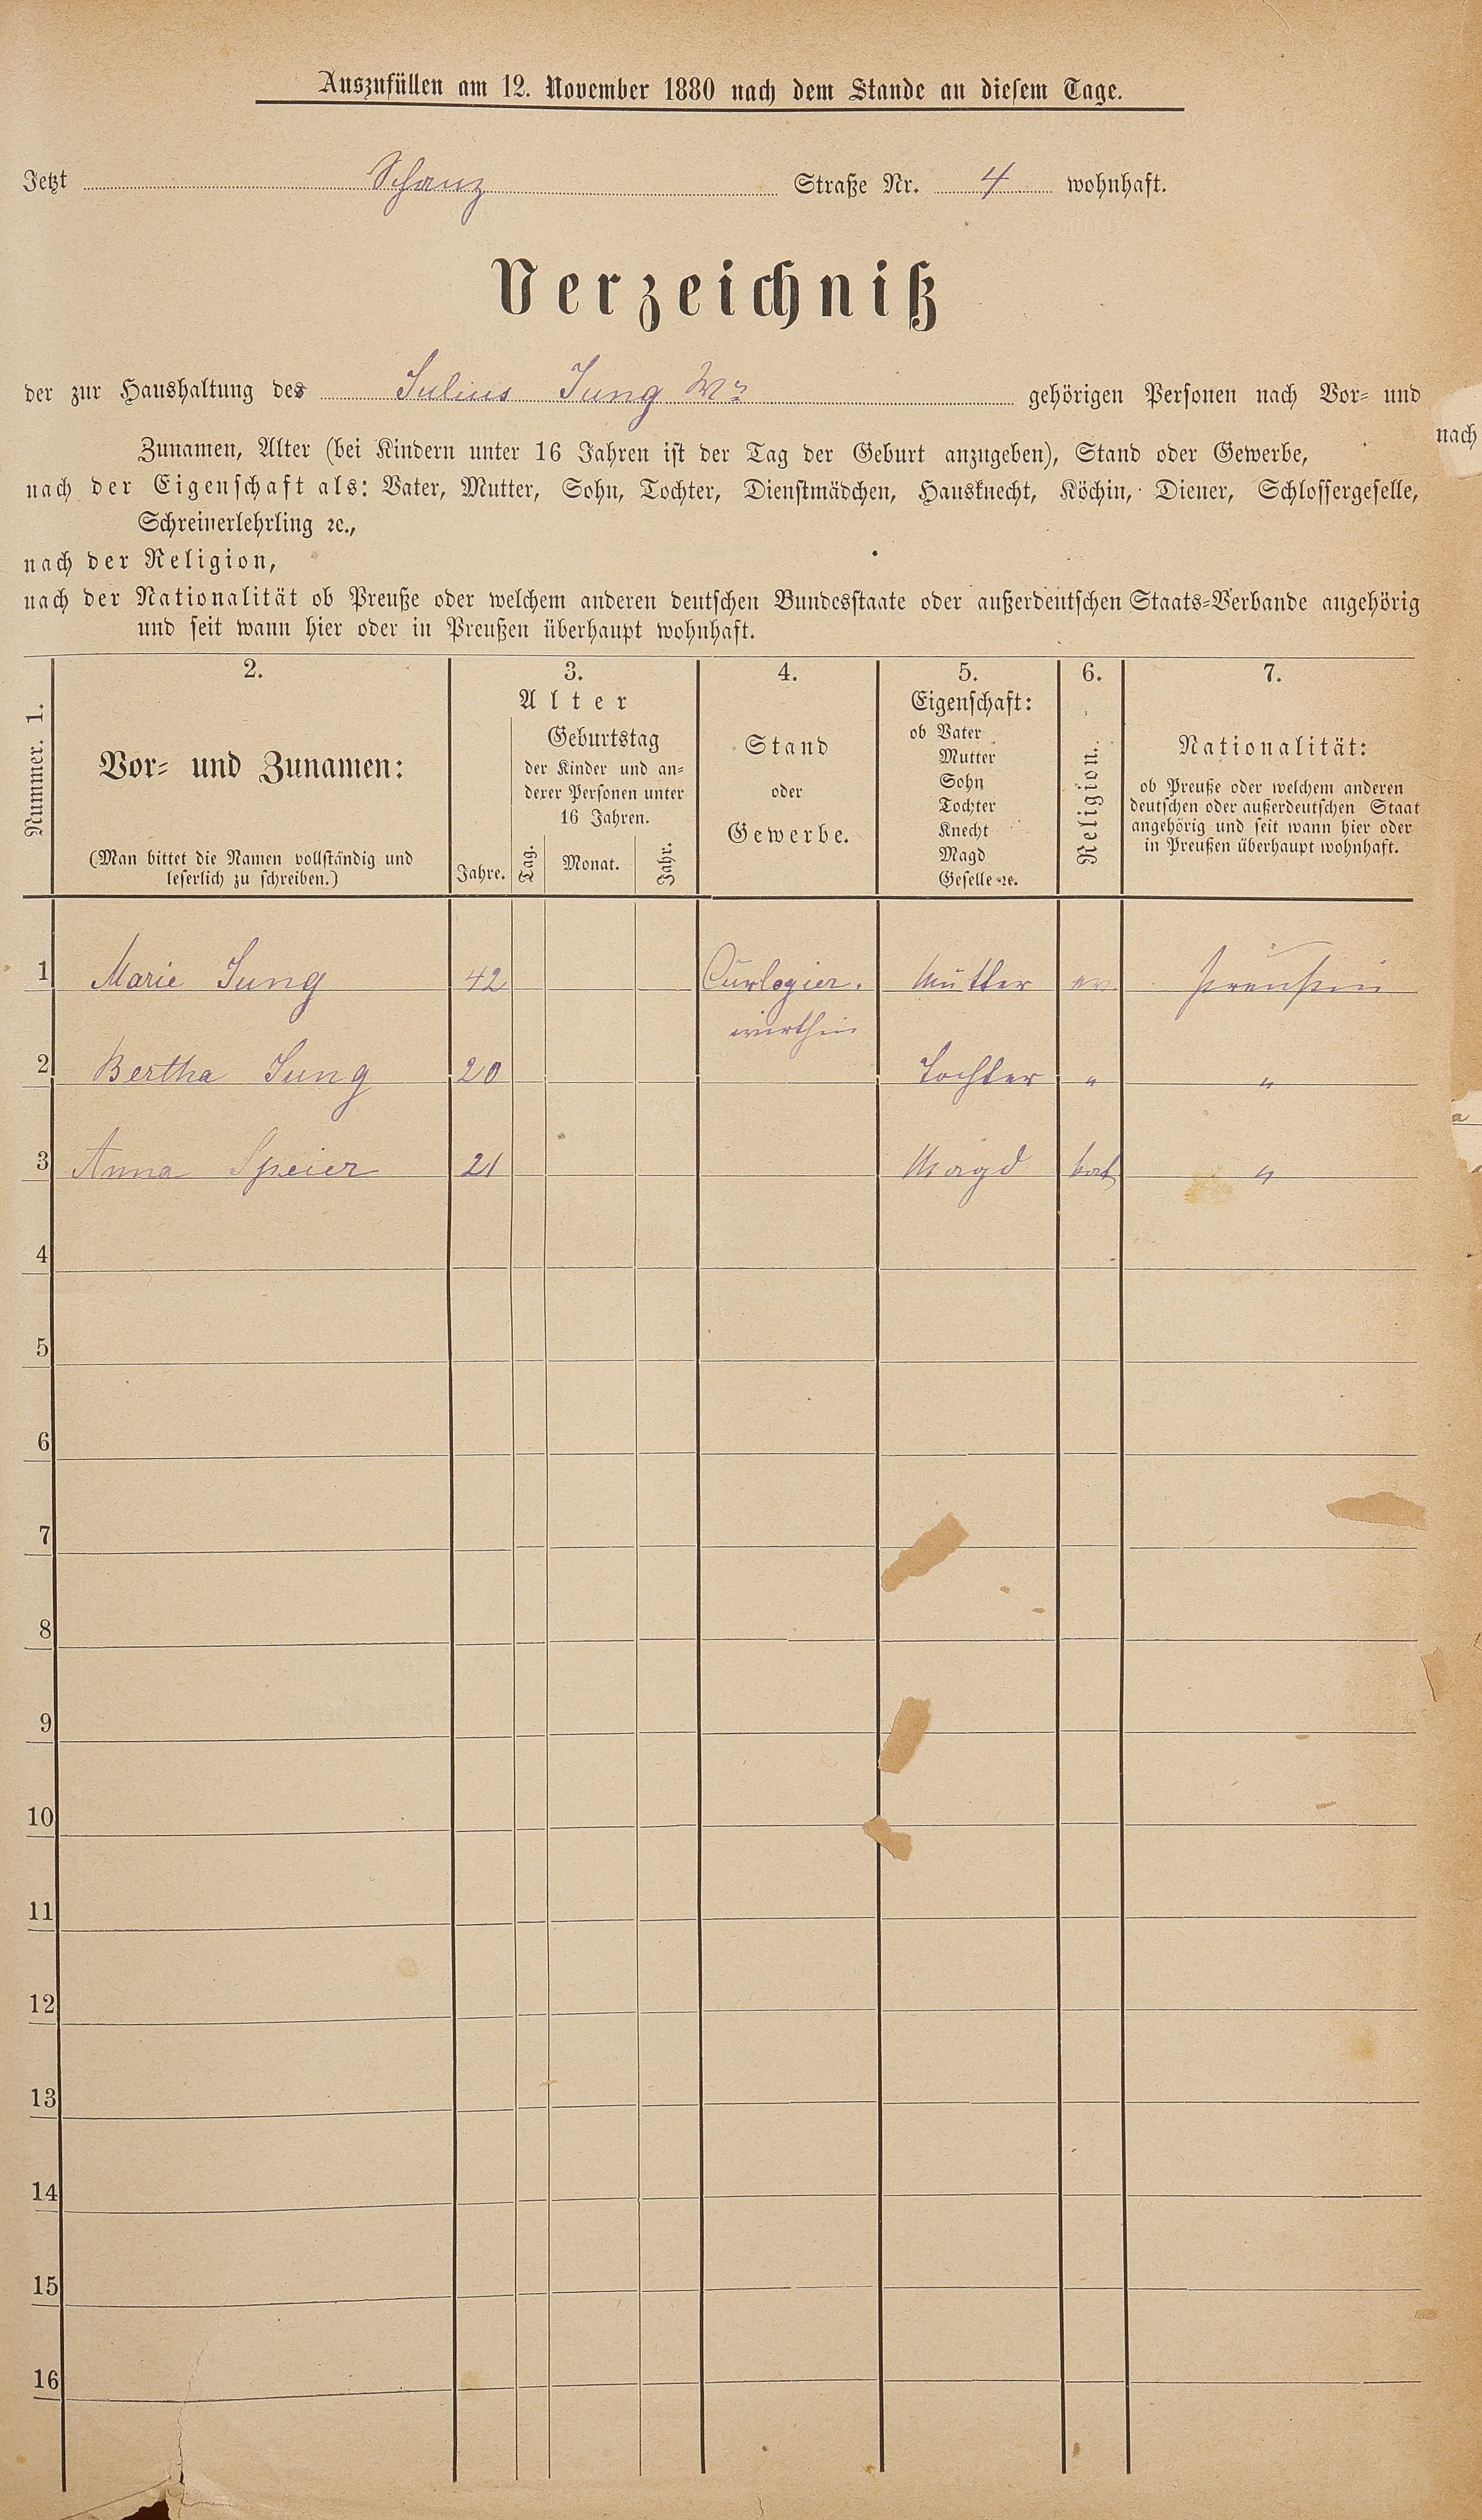 Auszufüllen am 12. November 1880 nach dem Stande an diesem Tage.
Jetzt Schanz Straße Nr. 4 wohnhaft.
Verzeichniß
der zur Haushaltung des Julius Jung Ww gehörigen Personen nach Vor- und
Zunamen, Alter (bei Kindern unter 16 Jahren ist der Tag der Geburt anzugeben), Stand oder Gewerbe,
nach
nach der Eigenschaft als: Vater, Mutter, Sohn, Tochter, Dienstmädchen, Hausknecht, Köchin, Diener, Schlossergeselle,
Schreinerlehrling ꝛc.,
nach der Religion,
nach der Nationalität ob Preuße oder welchem anderen deutschen Bundesstaate oder außerdeutschen Staats-Verbande angehörig
und seit wann hier oder in Preußen überhaupt wohnhaft.
Nummer. 1.
2.
Vor- und Zunamen:
(Man bittet die Namen vollständig und
leserlich zu schreiben.)
3.
Alter
Geburtstag
der Kinder und an-
derer Personen unter
16 Jahren.
Jahre. Tag. Monat. Jahr.
4.
Stand
oder
Gewerbe.
5.
Eigenschaft:
ob Vater
Mutter
Sohn
Tochter
Knecht
Magd
Geselle ꝛc.
6.
Religion.
7.
Nationalität:
ob Preuße oder welchem anderen
deutschen oder außerdeutschen Staat
angehörig und seit wann hier oder
in Preußen überhaupt wohnhaft.
1 Marie Jung 42 Curlogier. Mutter ev. Preußin
wirthin
2 Bertha Jung 20 Tochter " "
3 Anna Speier 21 Magd kat "
4
5
6
7
8
9
10
11
12
13
14
15
16